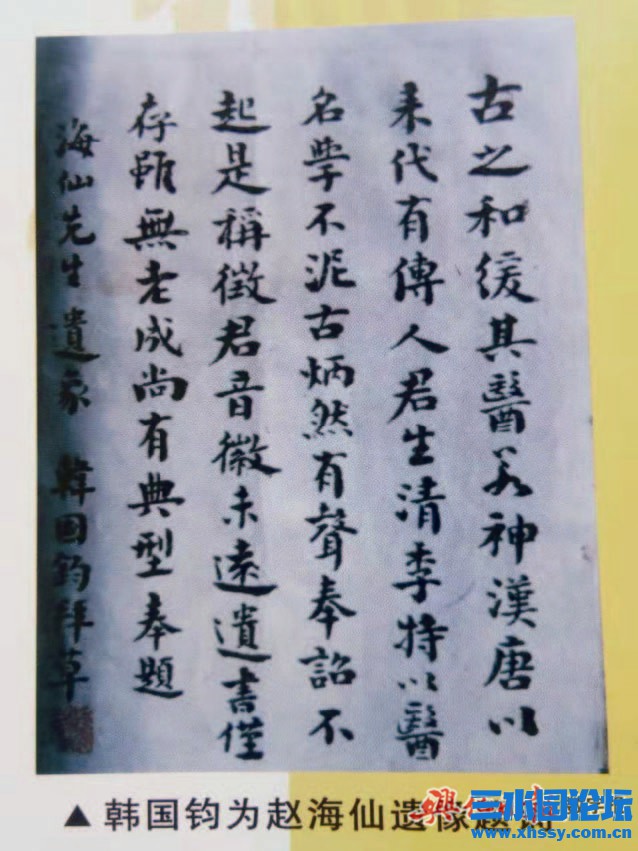 古之和缓其醫若神漢唐以
来代有傳人君生清季特以醫
名學不泥古炳然有聲奉詔不
起是稱徵君音徽未遠遺書僅
存雖無老成尚有典型奉題
海仙先生遺象 韓国鈞拜草
▲ 韩国钧为赵海仙遗像题词
三水园论坛
www.xhssy.com.cn